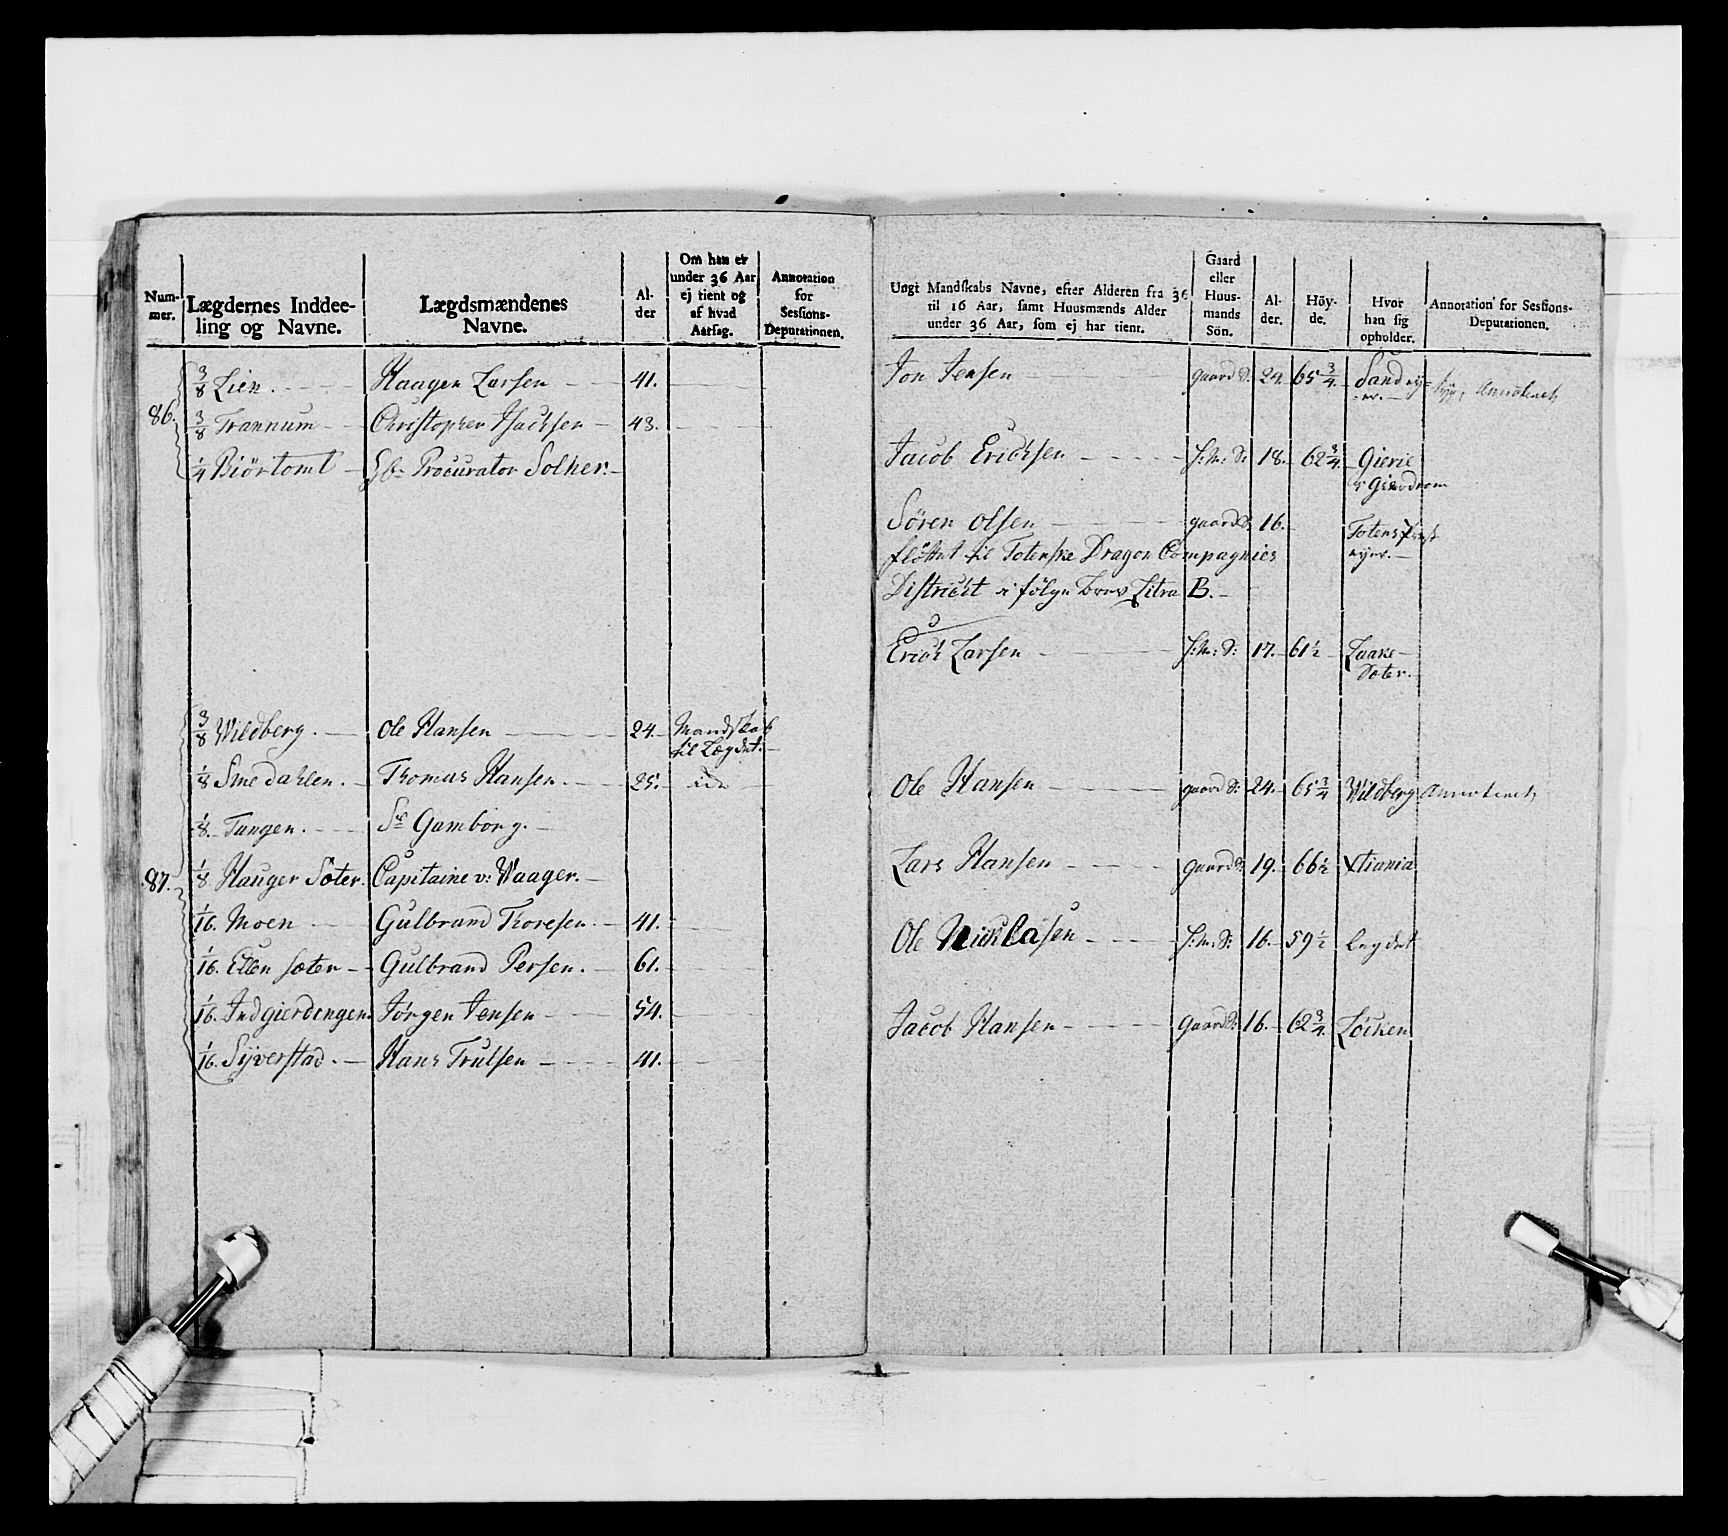 Num-
mer.
Lægdernes Inddee-
ling og Navne.
Lægdsmændenes
Navne.
Al-
der
Om han er
under 36 Aar
ej tient og
af hvad
Aarsag.
Annotation
for
Sessions-
Deputationen.
86.
3/8 Lien. 	Haagen Larsen 	41.
3/8 Trannum 	Christopher Isachsen 	43.
1/4 Biörtomt 	Procurator Solner.
87.
3/8 Wildberg. 	Ole Hansen 	24. 	Mandskab
til Lægdet.
1/8 Smedahlen. 	Thomas Hansen. 	25.
1/8. Tangen. 	Sr Gamborg.
1/8 Hauger Söter. 	Capitaine v: Waager.
1/16. Moen 	Gulbrand Thoresen. 	41.
1/16. Ellen sæter 	Gulbrand Persen. 	61.
1/16. Indgierdengen 	Jørgen Jensen 	54.
1/16. Syverstad. 	Hans Trulsen 	41.
Ungt Mandskabs Navne, efter Alderen fra 36
til 16 Aar, samt Huusmænds Alder
under 36 Aar, som ej har tient.
Gaard
eller
Huus-
mands
Sön.
Al-
der.
Höy-
de.
Hvor
han sig
opholder.
Annotation for Sessions-
Deputationen.
Jon Jensen 	gaard S. 	24. 	65 3/4. 	Sand
Jacob Erichsen 	H: M: S: 	18. 	62 3/4. 	Gierie
Sören Olsen 	gaard S: 	16. 	Totens
fløttet til Totenske Dragon Compagnies
District i følge Brev Litra B.
Erich Larsen 	H: M: S: 	17. 	61 1/2 	Laake-
Soter.
Ole Hansen 	gaard S: 	24. 	65 3/4 	Wildberg
Lars Hansen 	gaard S: 	19. 	66 1/2 	Xtiania
Ole Nicklasen 	H: M: S: 	16. 	59 1/2 	Legdet
Jacob Hansen 	gaard S: 	16. 	62 3/4. 	Löcken